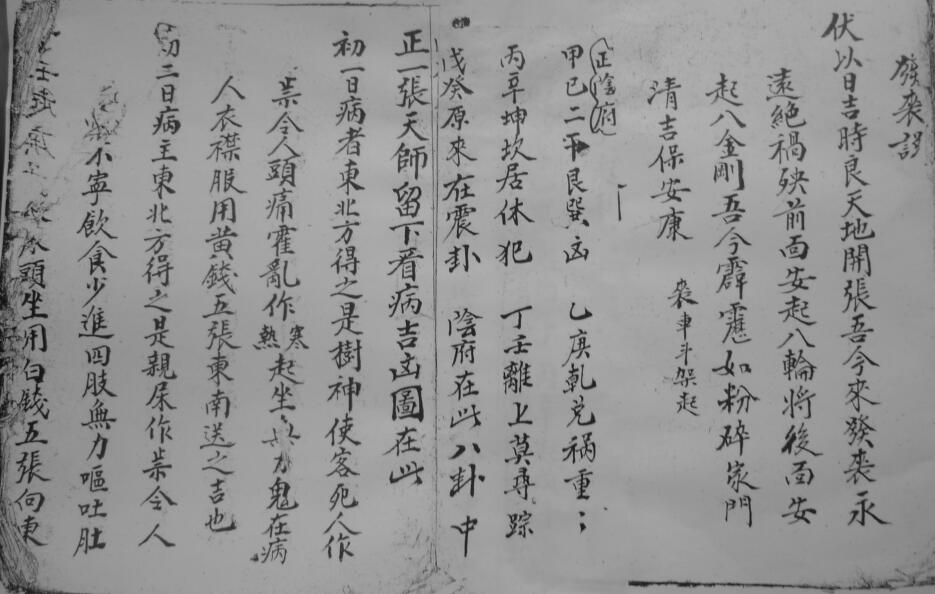 發喪謬
伏以日吉時良天地開張吾今來發喪永
遠絕禍殃前面安起八輪將後面安
起八金剛吾今霹靂如粉碎家門
清吉保安康 喪車斗架起
正陰府
甲己二干艮巽凶 乙庚乾兌禍重〻
丙辛坤坎居休犯 丁壬離上莫尋踪
戊癸原來在震卦 陰府在此八卦中
正一張天師留下看病吉凶圖在此
初一日病者東北方得之是樹神使客死人作
祟令人頭痛霍亂作寒熱起坐力鬼在病
人衣襟服用黄錢五張東南送之吉也
初三日病主東北方得之是親床作祟令人
不寧飲食少進四肢無力嘔吐肚
頭坐用白錢五張向東